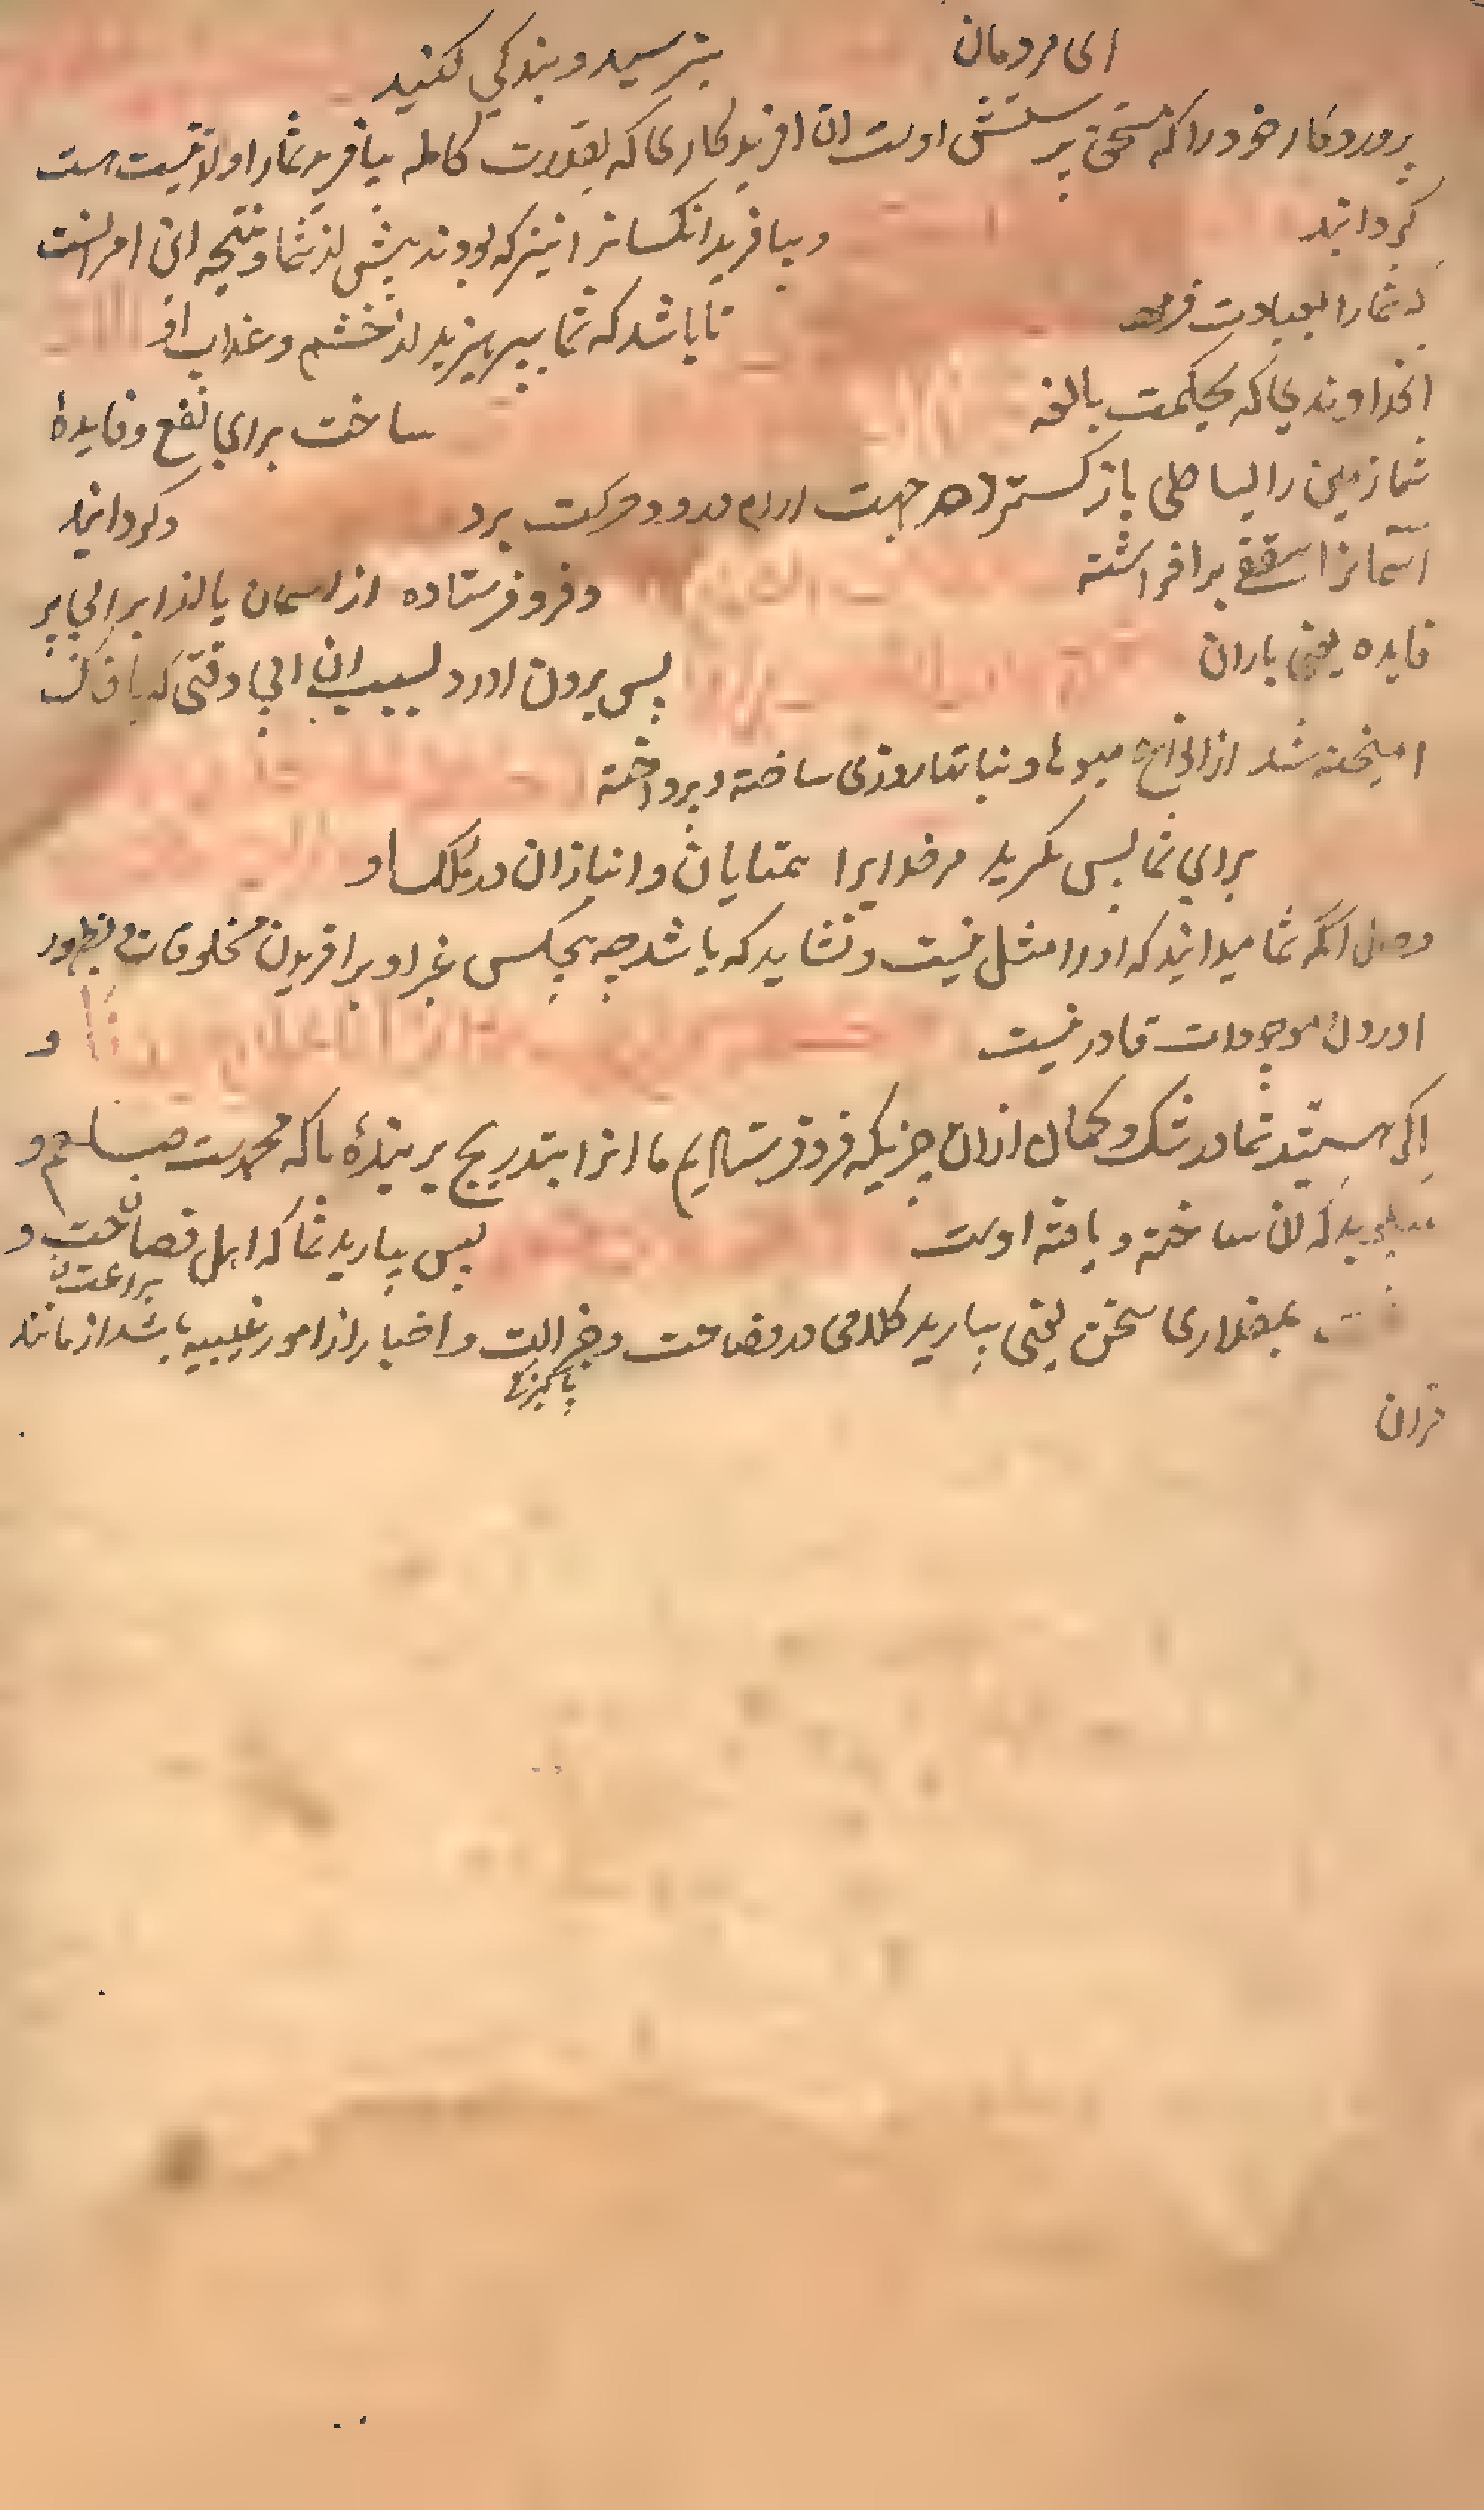 ای مردمان بترسید و بندگی کنید
پروردگار خود را که مستحق پرستش اوست ان افریدگاری که بقدرت کامله بیافرید شما را و لوقیست هست
گردانید و بیافرید انکسانرا نیز که بودند پیش از شما و نتیجه این امر انست
که شما را بعبادت فرمود تا باشد که شما بپرهیزید از خشم و عذاب او
انخداوندی که بحکمت بالغه ساخت برای نفع و فایدهٔ
شما زمین را بساطی باز گسترده جهت ارام و حرکت برو و گردانید
اسمانرا سقفی برافراشته و فرو فرستاده از اسمان یا از ابر ابی پر
فایده یعنی باران پس برون اورد بسبب ان ابی وقتی که با خاک
امیخته شد از انواع میوها و نباتها روزی ساخته و پرداخته
برای شما پس مگیرید مر خدایرا همتایان و انبازان در ملک او
و حال انکه شما میدانید که او را مثل نیست و نشاید که باشد چه هیچکس غیر او بر افریدن مخلوقات و بظهور
اوردن موجودات قادر نیست و
اگر هستید شما در شک و گمان ازان چیزیکه فرو فرستادیم ما انرا بتدریج بر بندهٔ ما که محمدست صلعم و
میگویید که ان ساخته و بافته اوست پس بیارید شما که اهل فصاحت و
براعت بمقداری سخن یعنی بیارید کلامی در فصاحت و جزالت و اخبار از امور غیبیه باشد از مانند
پاکیزه
قران